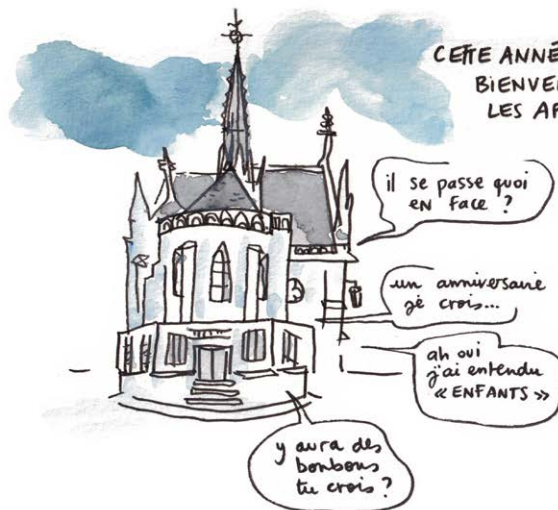 CETTE ANNÉ
BIENVE
LES AR
il se passe quoi
en face ?
un anniversaire
je crois...
ah oui
j'ai entendu
« ENFANTS »
y aura des
bonbons
tu crois ?